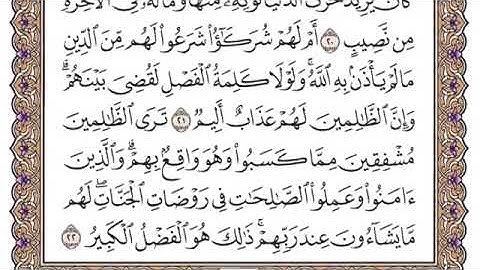 كَانَ يُرِيدُ حَرْثَ ٱلدُّنْيَا نُؤْتِهِۦ مِنْهَا وَمَا لَهُۥ فِى ٱلْأَخِرَةِ
مِن نَّصِيبٍ ٢٠ أَمْ لَهُمْ شُرَكَٰٓؤُا۟ شَرَعُوا۟ لَهُم مِّنَ ٱلدِّينِ
مَا لَمْ يَأْذَنۢ بِهِ ٱللَّهُ ۚ وَلَوْلَا كَلِمَةُ ٱلْفَصْلِ لَقُضِىَ بَيْنَهُمْ ۗ
وَإِنَّ ٱلظَّٰلِمِينَ لَهُمْ عَذَابٌ أَلِيمٌ ٢١ تَرَى ٱلظَّٰلِمِينَ
مُشْفِقِينَ مِمَّا كَسَبُوا۟ وَهُوَ وَاقِعٌۢ بِهِمْ ۗ وَٱلَّذِينَ
ءَامَنُوا۟ وَعَمِلُوا۟ ٱلصَّٰلِحَٰتِ فِى رَوْضَاتِ ٱلْجَنَّاتِ ۖ لَهُم
مَّا يَشَآءُونَ عِندَ رَبِّهِمْ ۚ ذَٰلِكَ هُوَ ٱلْفَضْلُ ٱلْكَبِيرُ ٢٢